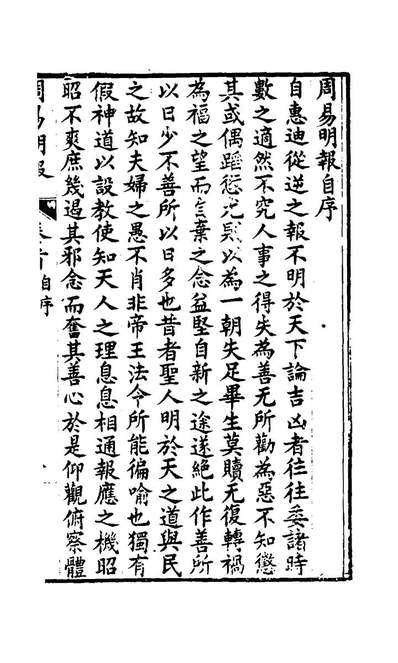 周易明報自序
自惠迪從逆之報不明於天下論吉凶者往往委諸時
數之適然不究人事之得失為善无所勸為惡不知懲
其或偶蹈愆尤以為一朝失足畢生莫贖无復轉禍
為福之望而自棄之念益堅自新之途遂絕此作善所
以日少不善所以日多也昔者聖人明於天之道與民
之故知夫婦之愚不肖非帝王法令所能徧喻也獨有
假神道以設教使知天人之理息息相通報應之機昭
昭不爽庶幾遏其邪念而奮其善心於是仰觀俯察體
周易明報
自序